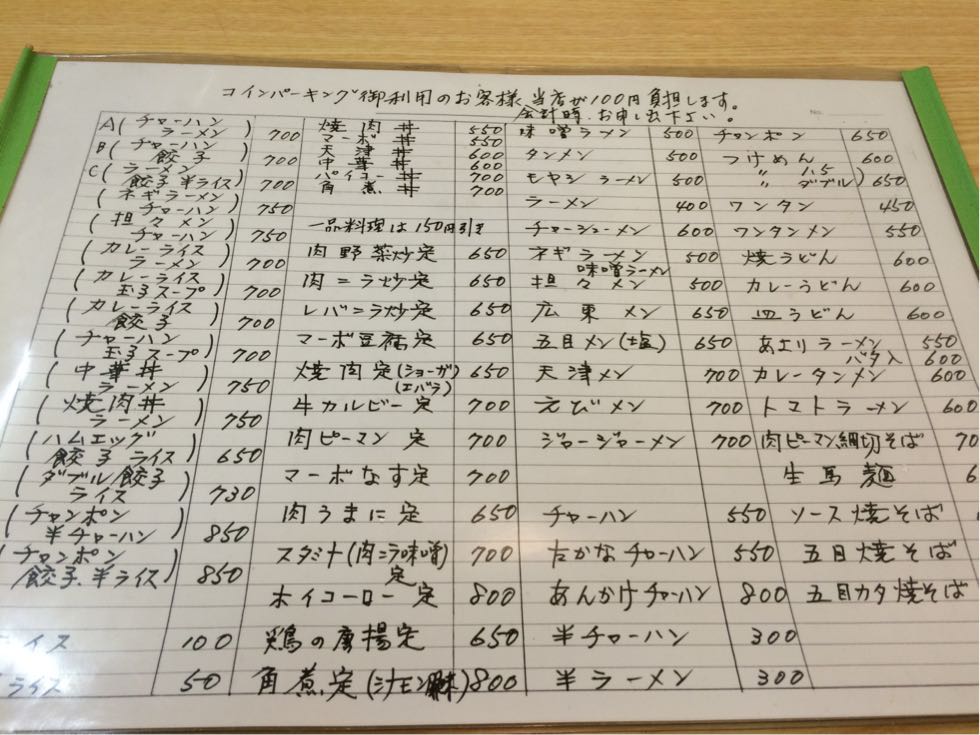 コインパーキング御利用のお客様、当店が100円負担します。
会計時、お申し出下さい。
No.
A(チャーハン
ラーメン) 700
B(チャーハン
餃子) 700
C(ラーメン
餃子 半ライス) 700
(ネギラーメン
チャーハン) 750
(担々メン
チャーハン) 750
(カレーライス
ラーメン) 700
(カレーライス
玉子スープ) 700
(カレーライス
餃子) 700
(チャーハン
玉子スープ) 700
(中華丼
ラーメン) 750
(焼肉丼
ラーメン) 750
(ハムエッグ
餃子 ライス) 650
(ダブル餃子
ライス) 730
(チャンポン
半チャーハン) 850
(チャンポン
餃子、半ライス) 850
イス 100
ライス 50
焼肉丼 550
マーボ丼 550
天津丼 600
中華丼 600
パイコー丼 700
角煮丼 700
一品料理は150円引き
肉野菜炒定 650
肉ニラ炒定 650
レバニラ炒定 650
マーボ豆腐定 650
焼肉定(ショーガ)(エバラ) 650
牛カルビー定 700
肉ピーマン定 700
マーボなす定 700
肉うまに定 650
スタミナ(肉ニラ味噌)定 700
ホイコーロー定 800
鶏の唐揚定 650
角煮定 800
味噌ラーメン 500
タンメン 500
モヤシラーメン 500
ラーメン 400
チャーシューメン 600
ネギラーメン 500
味噌ラーメン
担々メン 500
広東メン 650
五目メン(塩) 650
天津メン 700
えびメン 700
ジャージャーメン 700
チャーハン 550
たかなチャーハン 550
あんかけチャーハン 800
半チャーハン 300
半ラーメン 300
チャンポン 650
つけめん 600
〃 1.5
〃 ダブル) 650
ワンタン 450
ワンタンメン 550
焼うどん 600
カレーうどん 600
皿うどん 600
あさりラーメン 550
バタ入 600
カレータンメン 600
トマトラーメン 600
肉ピーマン細切そば 70
生馬麺 6
ソース焼そば
五目焼そば
五目カタ焼そば